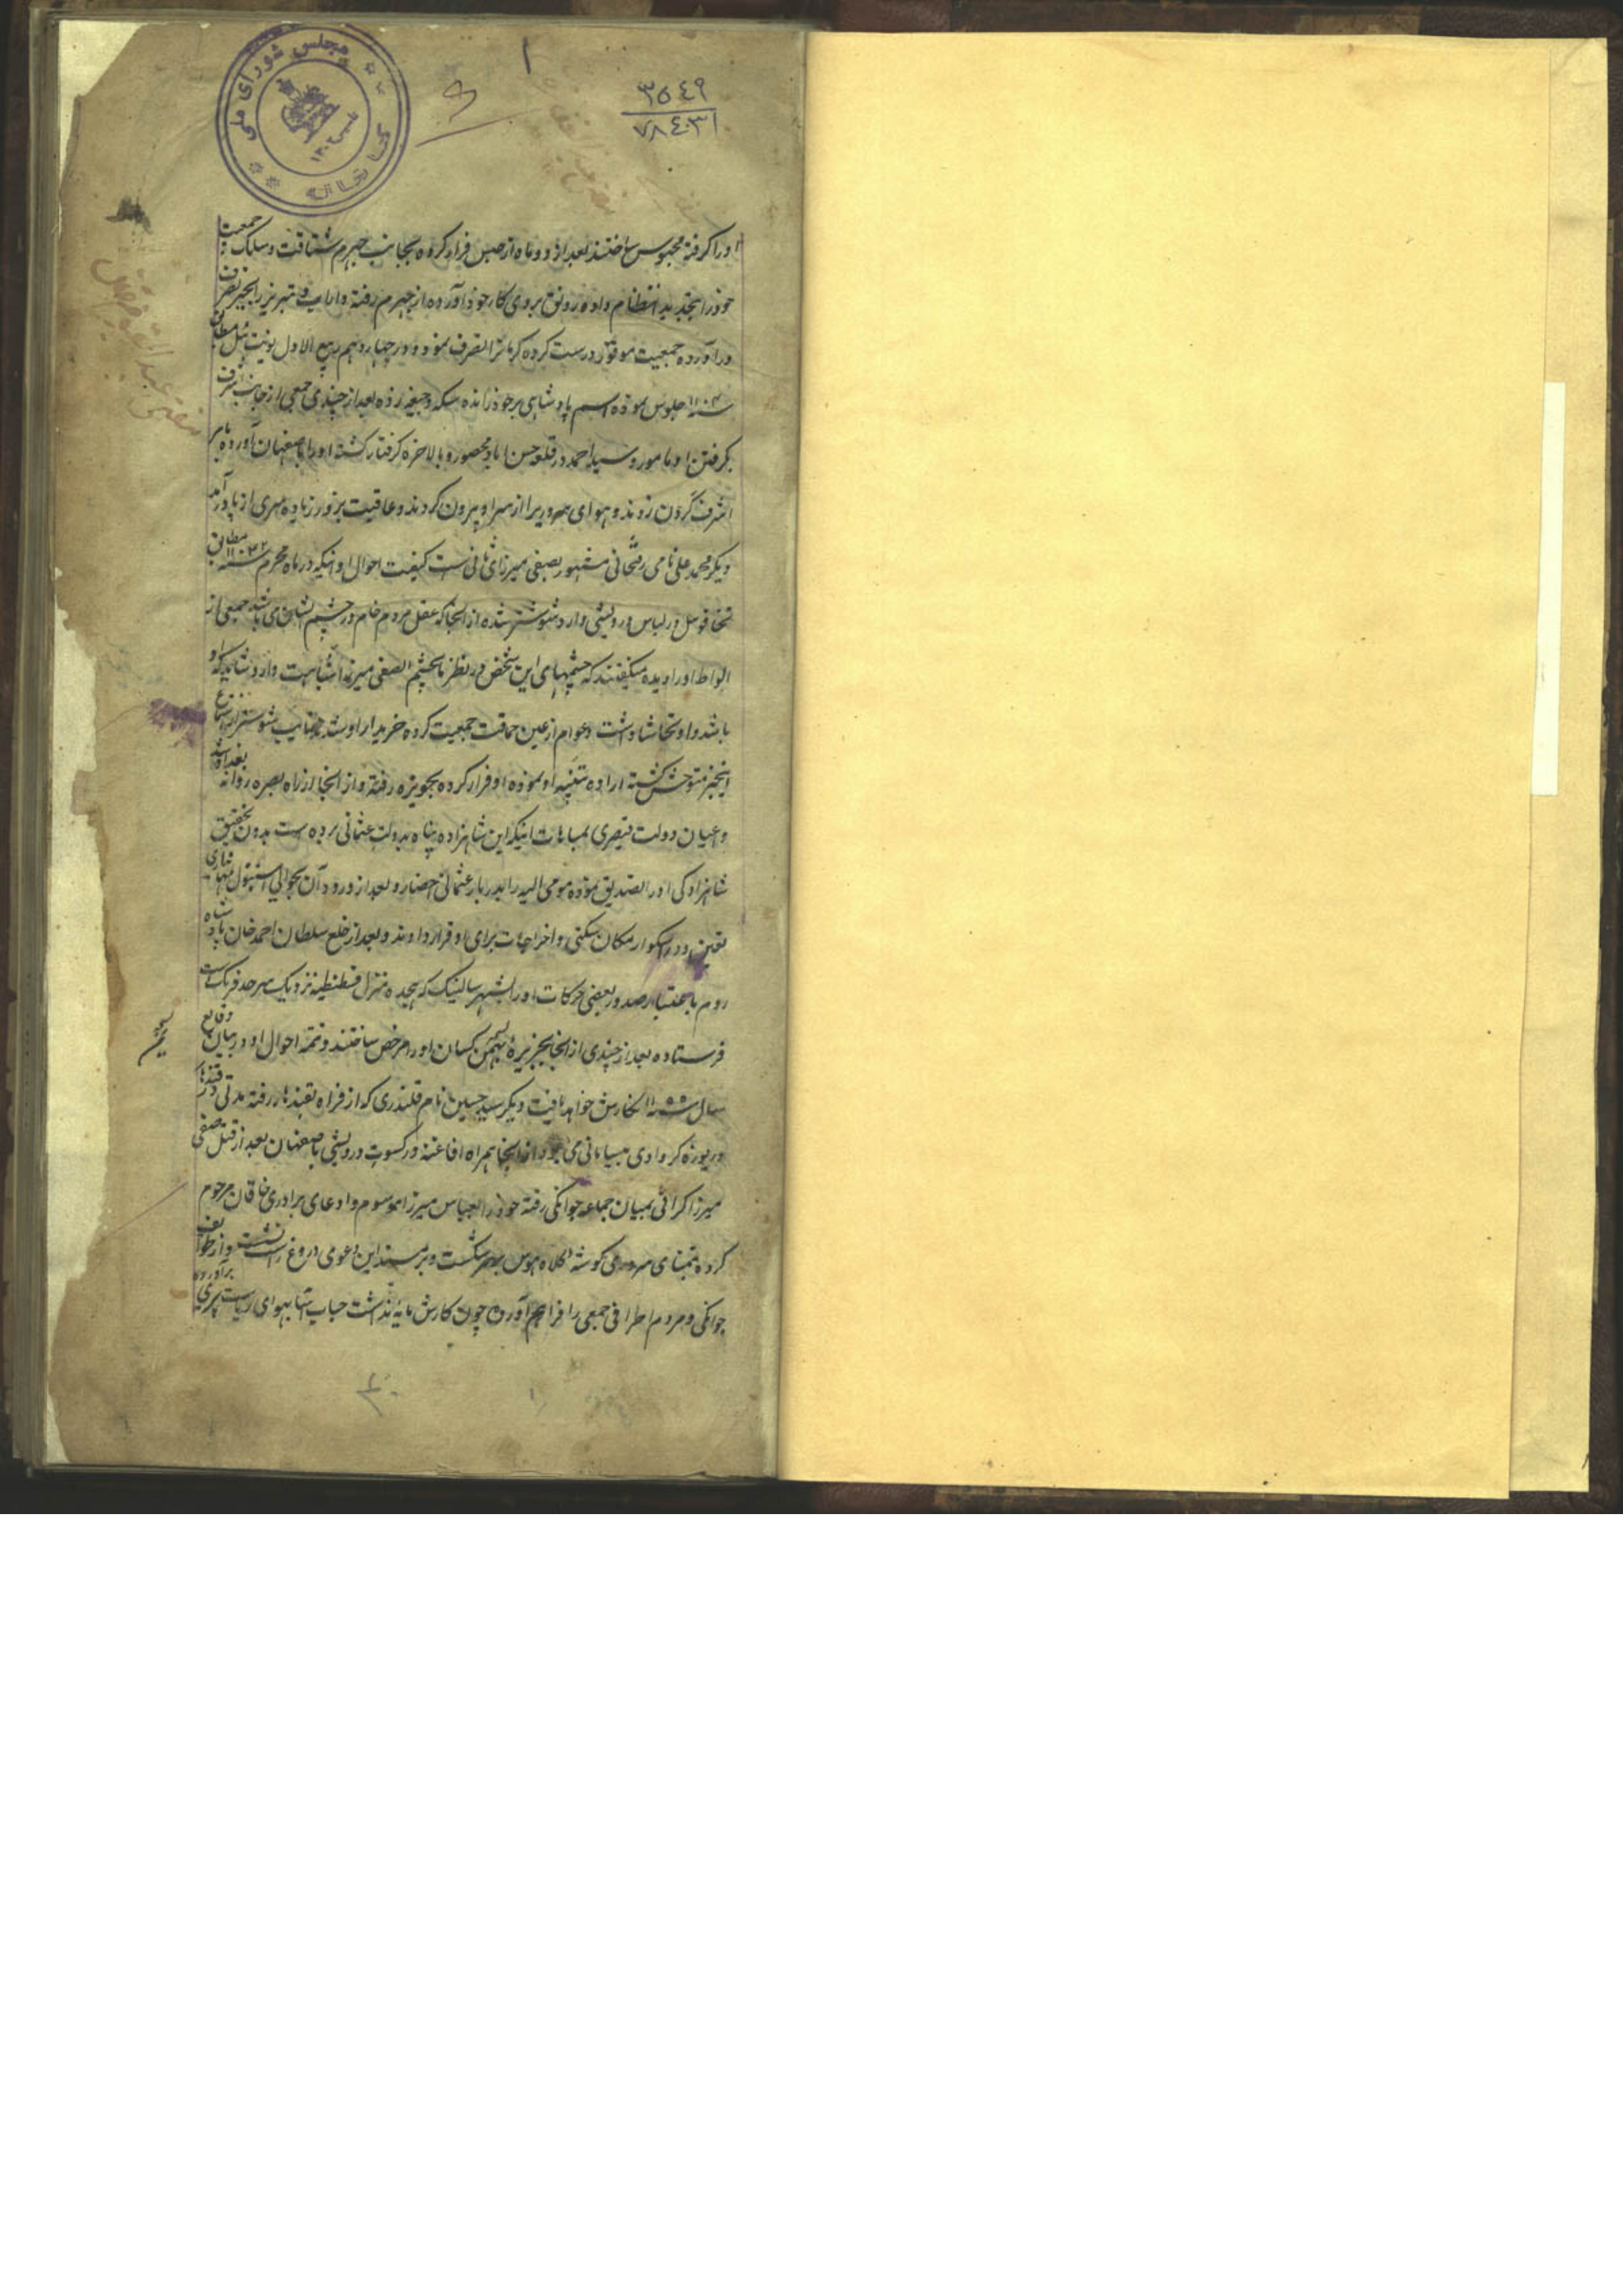 ۱
۳۵۴۹
۷۸۴۰۳۱
مجلس شورای ملی
کتابخانه
اورا کرفته محبوس ساختند بعد از دو ماه از حبس فرار کرده بجانب جهرم شتافت و سلک جمعیت
خود را بتجدید انتظام داده رونق بروی کار خود آورده از جهرم رفته داراب و نیریز را بحیز تصرف
در آورده جمعیت موفور درست کرده کرمانرا تصرف نمود و در چهاردهم ربیع الاول یونت ئیل مطابق
سنه جلوس نموده اسم پادشاهی بر خود رانده سکه و جیغه زده بعد از چندی جمعی از جانب اشرف
بکرفتن او مامور و سید احمد در قلعه حسن اباد محصور و بالاخره کرفتار کشته اورا باصفهان آورده بامر
اشرف کردن زدند و هوای سروریرا از سر او بیرون کردند و عاقبت بزور زیاده سری از پا در آمد
دیکر محمد علی نامی رفسنجانی مشهور بصفی میرزای ثانی است کیفیت احوال او اینکه در ماه محرم سنه مطابق
تخاقوی ئیل در لباس درویشی وارد شوشتر شده از انجا که عقل مردم خام در چشم ایشان می باشد جمعی از
الواط اورا دیده میکفتند که چشمهای این شخص در نظر ما بچشم صفی میرزا شباهت دارد شاید که او
باشد و او تحاشا داشت عوام از عین حماقت جمعیت کرده خریدار او شدند نایب شوشتر از استماع
اینخبر متوحش کشته اراده تنبیه او نموده او فرار کرده بحویزه رفته و از انجا از راه بصره روانه بغداد شد
و اعیان دولت قیصری بمباهات اینکه این شاهزاده پناه بدولت عثمانی برده است بدون تحقیق
شاهزادکی اورا تصدیق نموده مومی الیه را بدربار عثمانی احضار و بعد از ورود آن بحوالی استنبول مهمانداری
تعیین و در اسکدار مکان سکنی و اخراجات برای او قرار دادند و بعد از خلع سلطان احمد خان پادشاه
روم باعتبار صدور بعضی حرکات اورا بشهر سالنیک که هیجده منزل قسطنطنیه نزدیک سرحد فرنک است
فرستاده بعد از چندی از انجا بجزیره کسان اورا مرخص ساختند و تتمه احوال او در بیان وقایع
سال سنه ۱۱۵۵ نکارش خواهد یافت دیکر سید حسین نام قلندری که از فراه بقندهار رفته مدتی در قندهار
دریوزه کر وادی بیسامانی می بود از انجا همراه افاغنه در کسوت درویشی باصفهان بعد از قتل صفی
میرزا کرائی بمیان جماعه جوانکی رفته خود را بعباس میرزا موسوم و ادعای برادری خاقان مرحوم
کرده بتمنای سروری کوشه کلاه هوس بر سر شکست و بر مسند این دعوی دروغ راست نشست و از طوایف
جوانکی و مردم اطراف جمعی را فراهم آورد چون کارش مایه نداشت حباب آسا بهوای ریاست سری برآورده